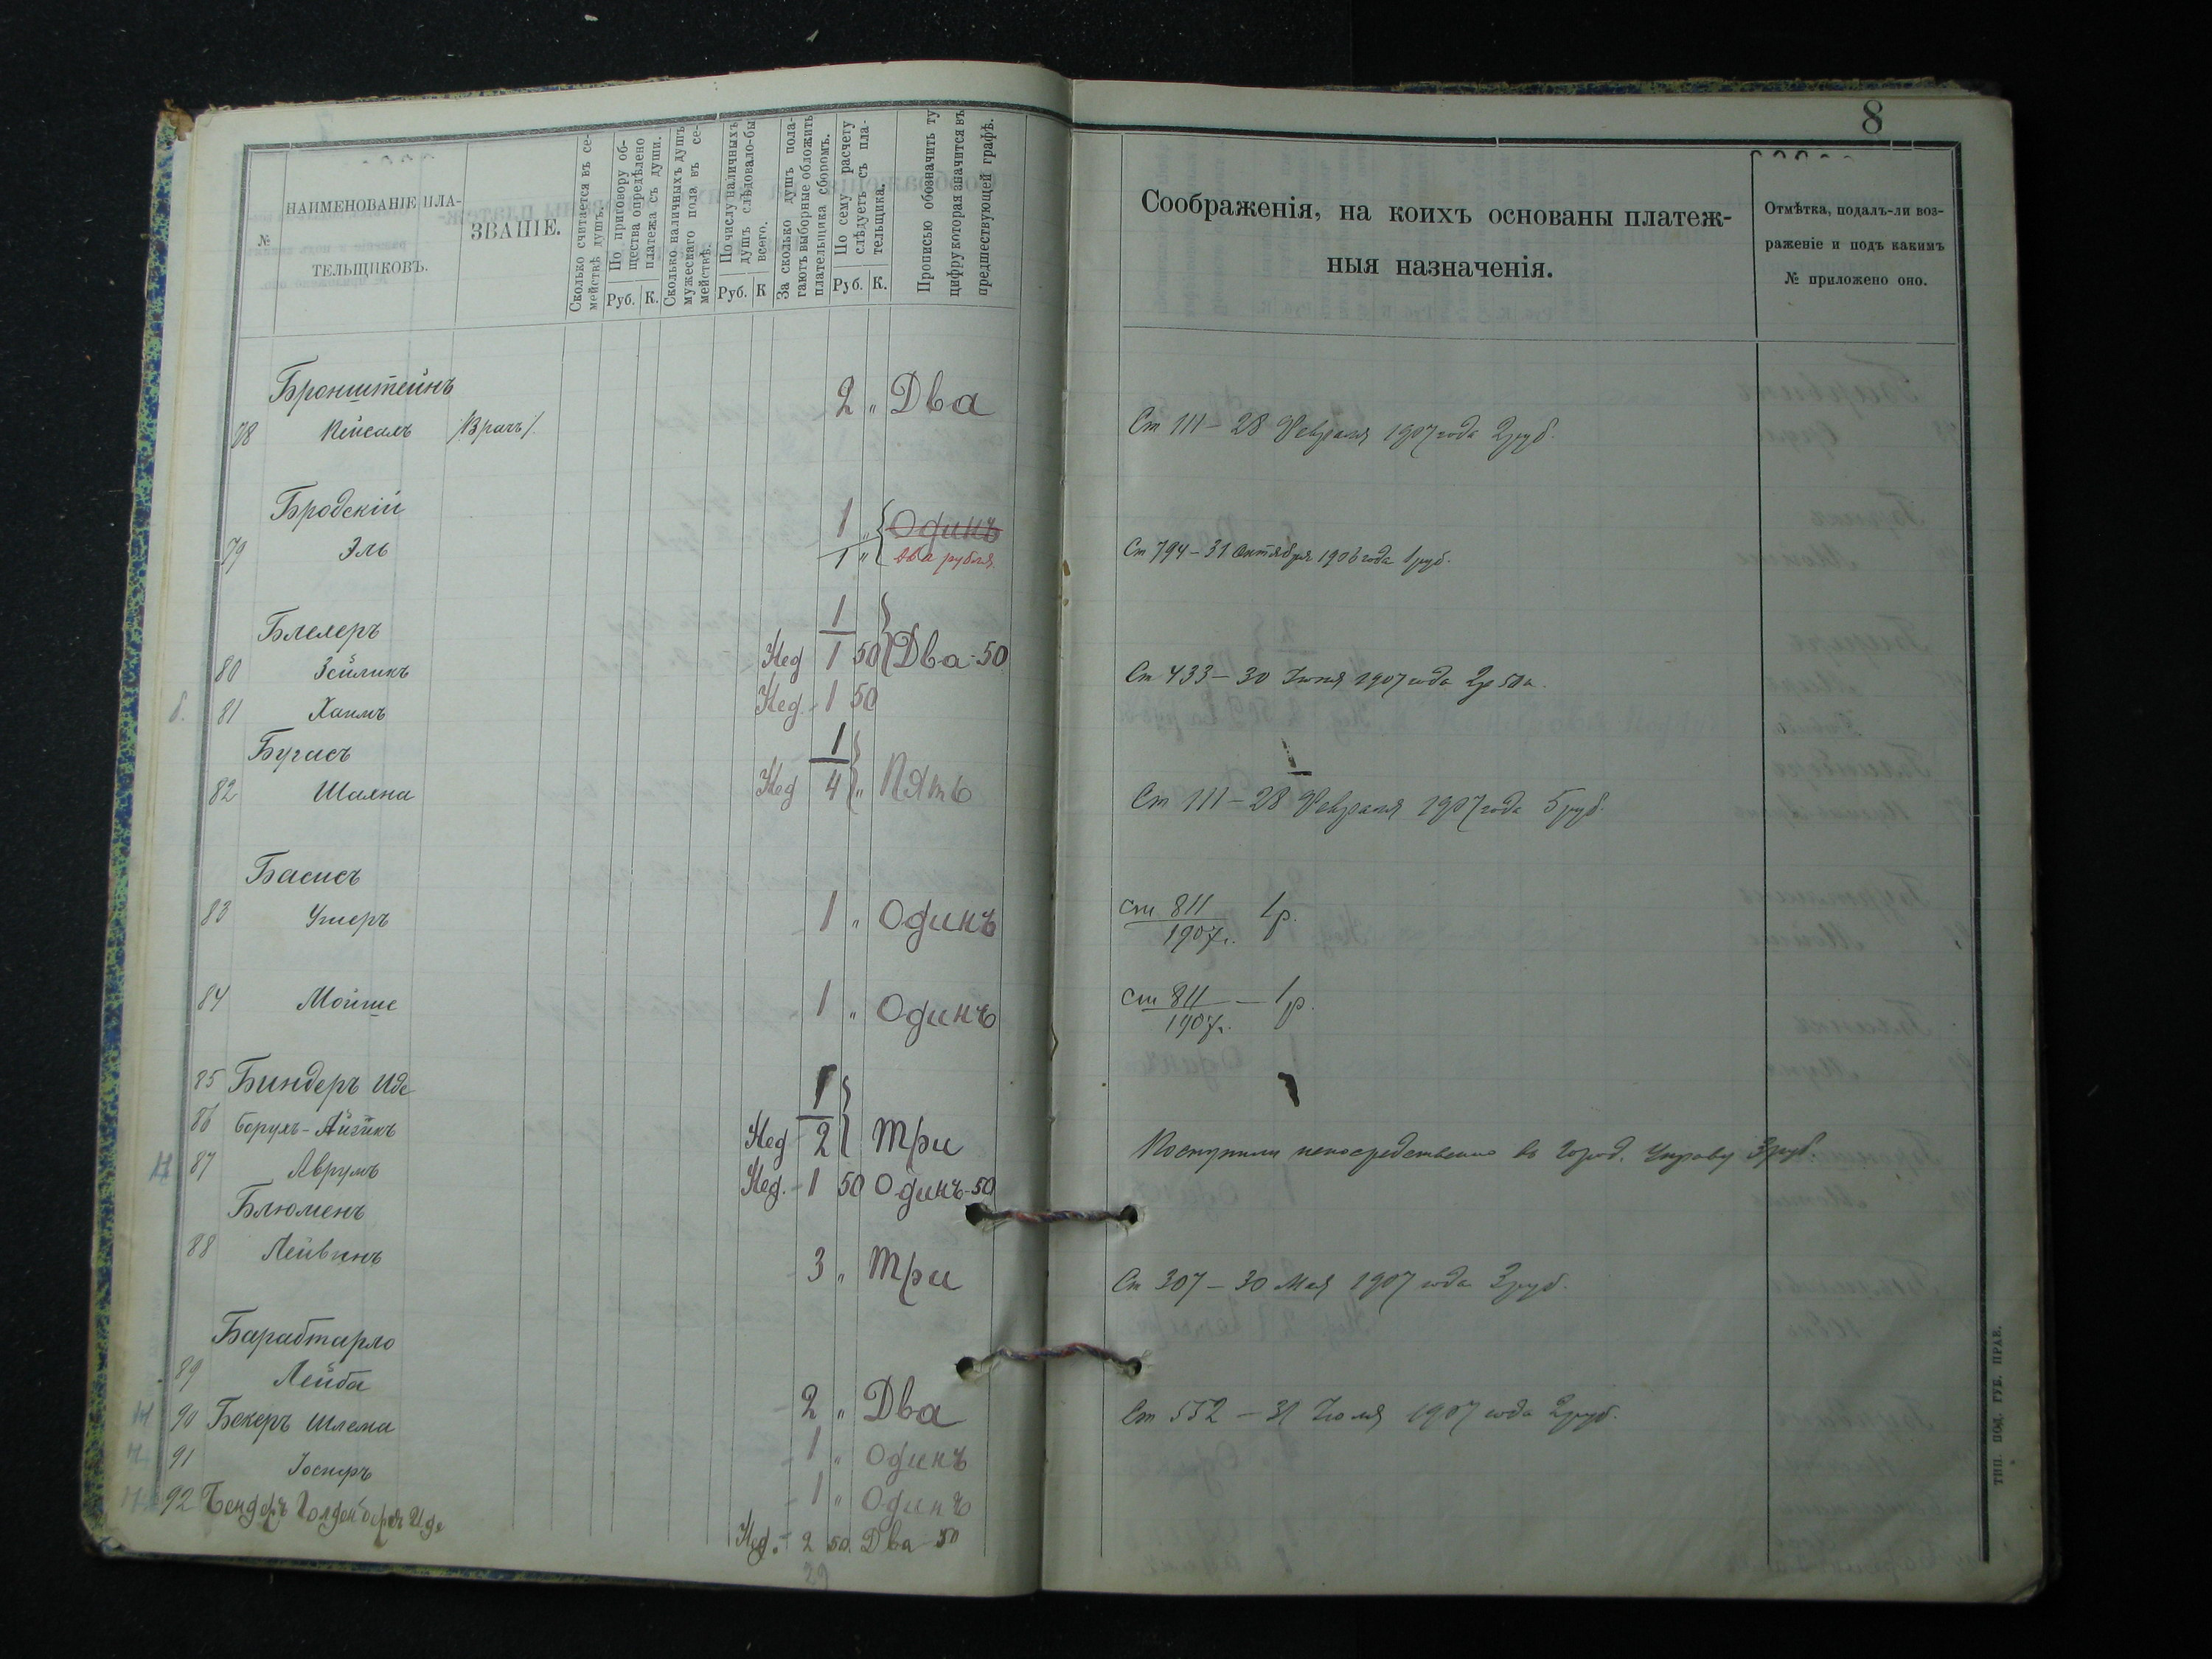 8
№
НАИМЕНОВАНІЕ ПЛА-
ТЕЛЬЩИКОВЪ.
ЗВАНІЕ.
Сколько считается въ се-
мействѣ душъ.
По приговору об-
щества опредѣлено
платежа съ души.
Руб. К.
Сколько наличныхъ душъ
мужескаго пола въ се-
мействѣ.
По числу наличныхъ
душъ слѣдовало-бы
всего.
Руб. К
За сколько душъ пола-
гаютъ выборные обложить
плательщика сборомъ.
По сему расчету
слѣдуетъ съ пла-
тельщика.
Руб. К.
Прописью обозначить ту
цифру которая значится въ
предшествующей графѣ.
Соображенія, на коихъ основаны платеж-
ныя назначенія.
Отмѣтка, подалъ-ли воз-
раженіе и подъ какимъ
№ приложено оно.
Бронштейнъ
78 Пейсахъ /Врачъ/ 2 " Два
Ст 111 - 28 Февраля 1907 года 2 руб.
Бродскій
79 Эль 1 " Одинъ
1 " два рубля.
Ст 794 - 31 Октября 1906 года 1 руб.
Блелеръ 1
80 Зейликъ Нед 1 50 Два - 50
Ст 433 - 30 Іюня 1907 года 2р 50к.
81 Хаимъ Нед. - 1 50
Бугасъ 1
82 Шахна Нед 4 " Пять
Ст 111 - 28 Февраля 1907 года 5 руб.
Басисъ
83 Ушеръ 1 " Одинъ
ст 811 1р.
1907г.
84 Мойше 1 " Одинъ
ст 811 - 1р.
1907г.
85 Биндеръ Иде 1
86 Борухъ-Айзикъ Нед 2 Три
Поступили непосредственно въ Город. Управу 3 руб.
87 Аврумъ Нед. - 1 50 Одинъ-50
Блюменъ
88 Лейвинъ 3 " Три
Ст 307 - 30 Мая 1907 года 3 руб.
Барабтарло
89 Лейба 2 " Два
Ст 552 - 31 Іюля 1907 года 2 руб.
90 Бекеръ Шлема - 1 " Одинъ
91 Іосифъ - 1 " Одинъ
92 Бендеръ Иде Нед. - 2 50 Два 50
29
ТИП. ПОД. ГУБ. ПРАВ.